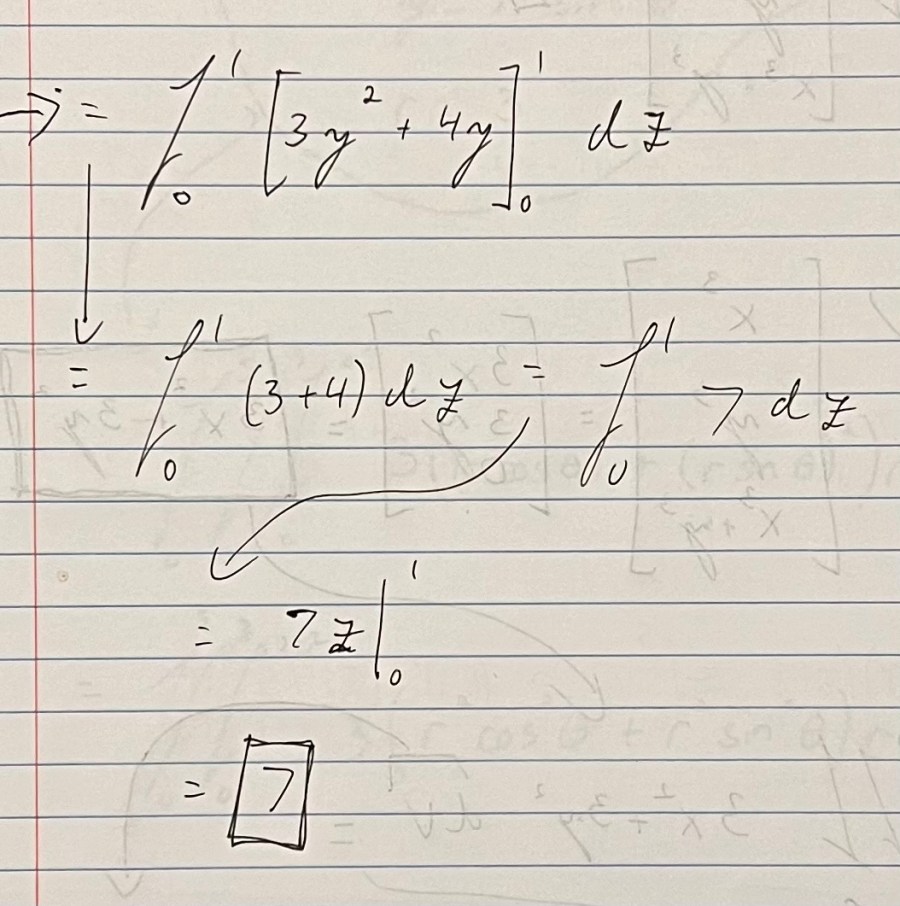 → = ∫₀¹ [3y² + 4y]₀¹ dz
= ∫₀¹ (3+4) dz = ∫₀¹ 7 dz
= 7z |₀¹
= 7